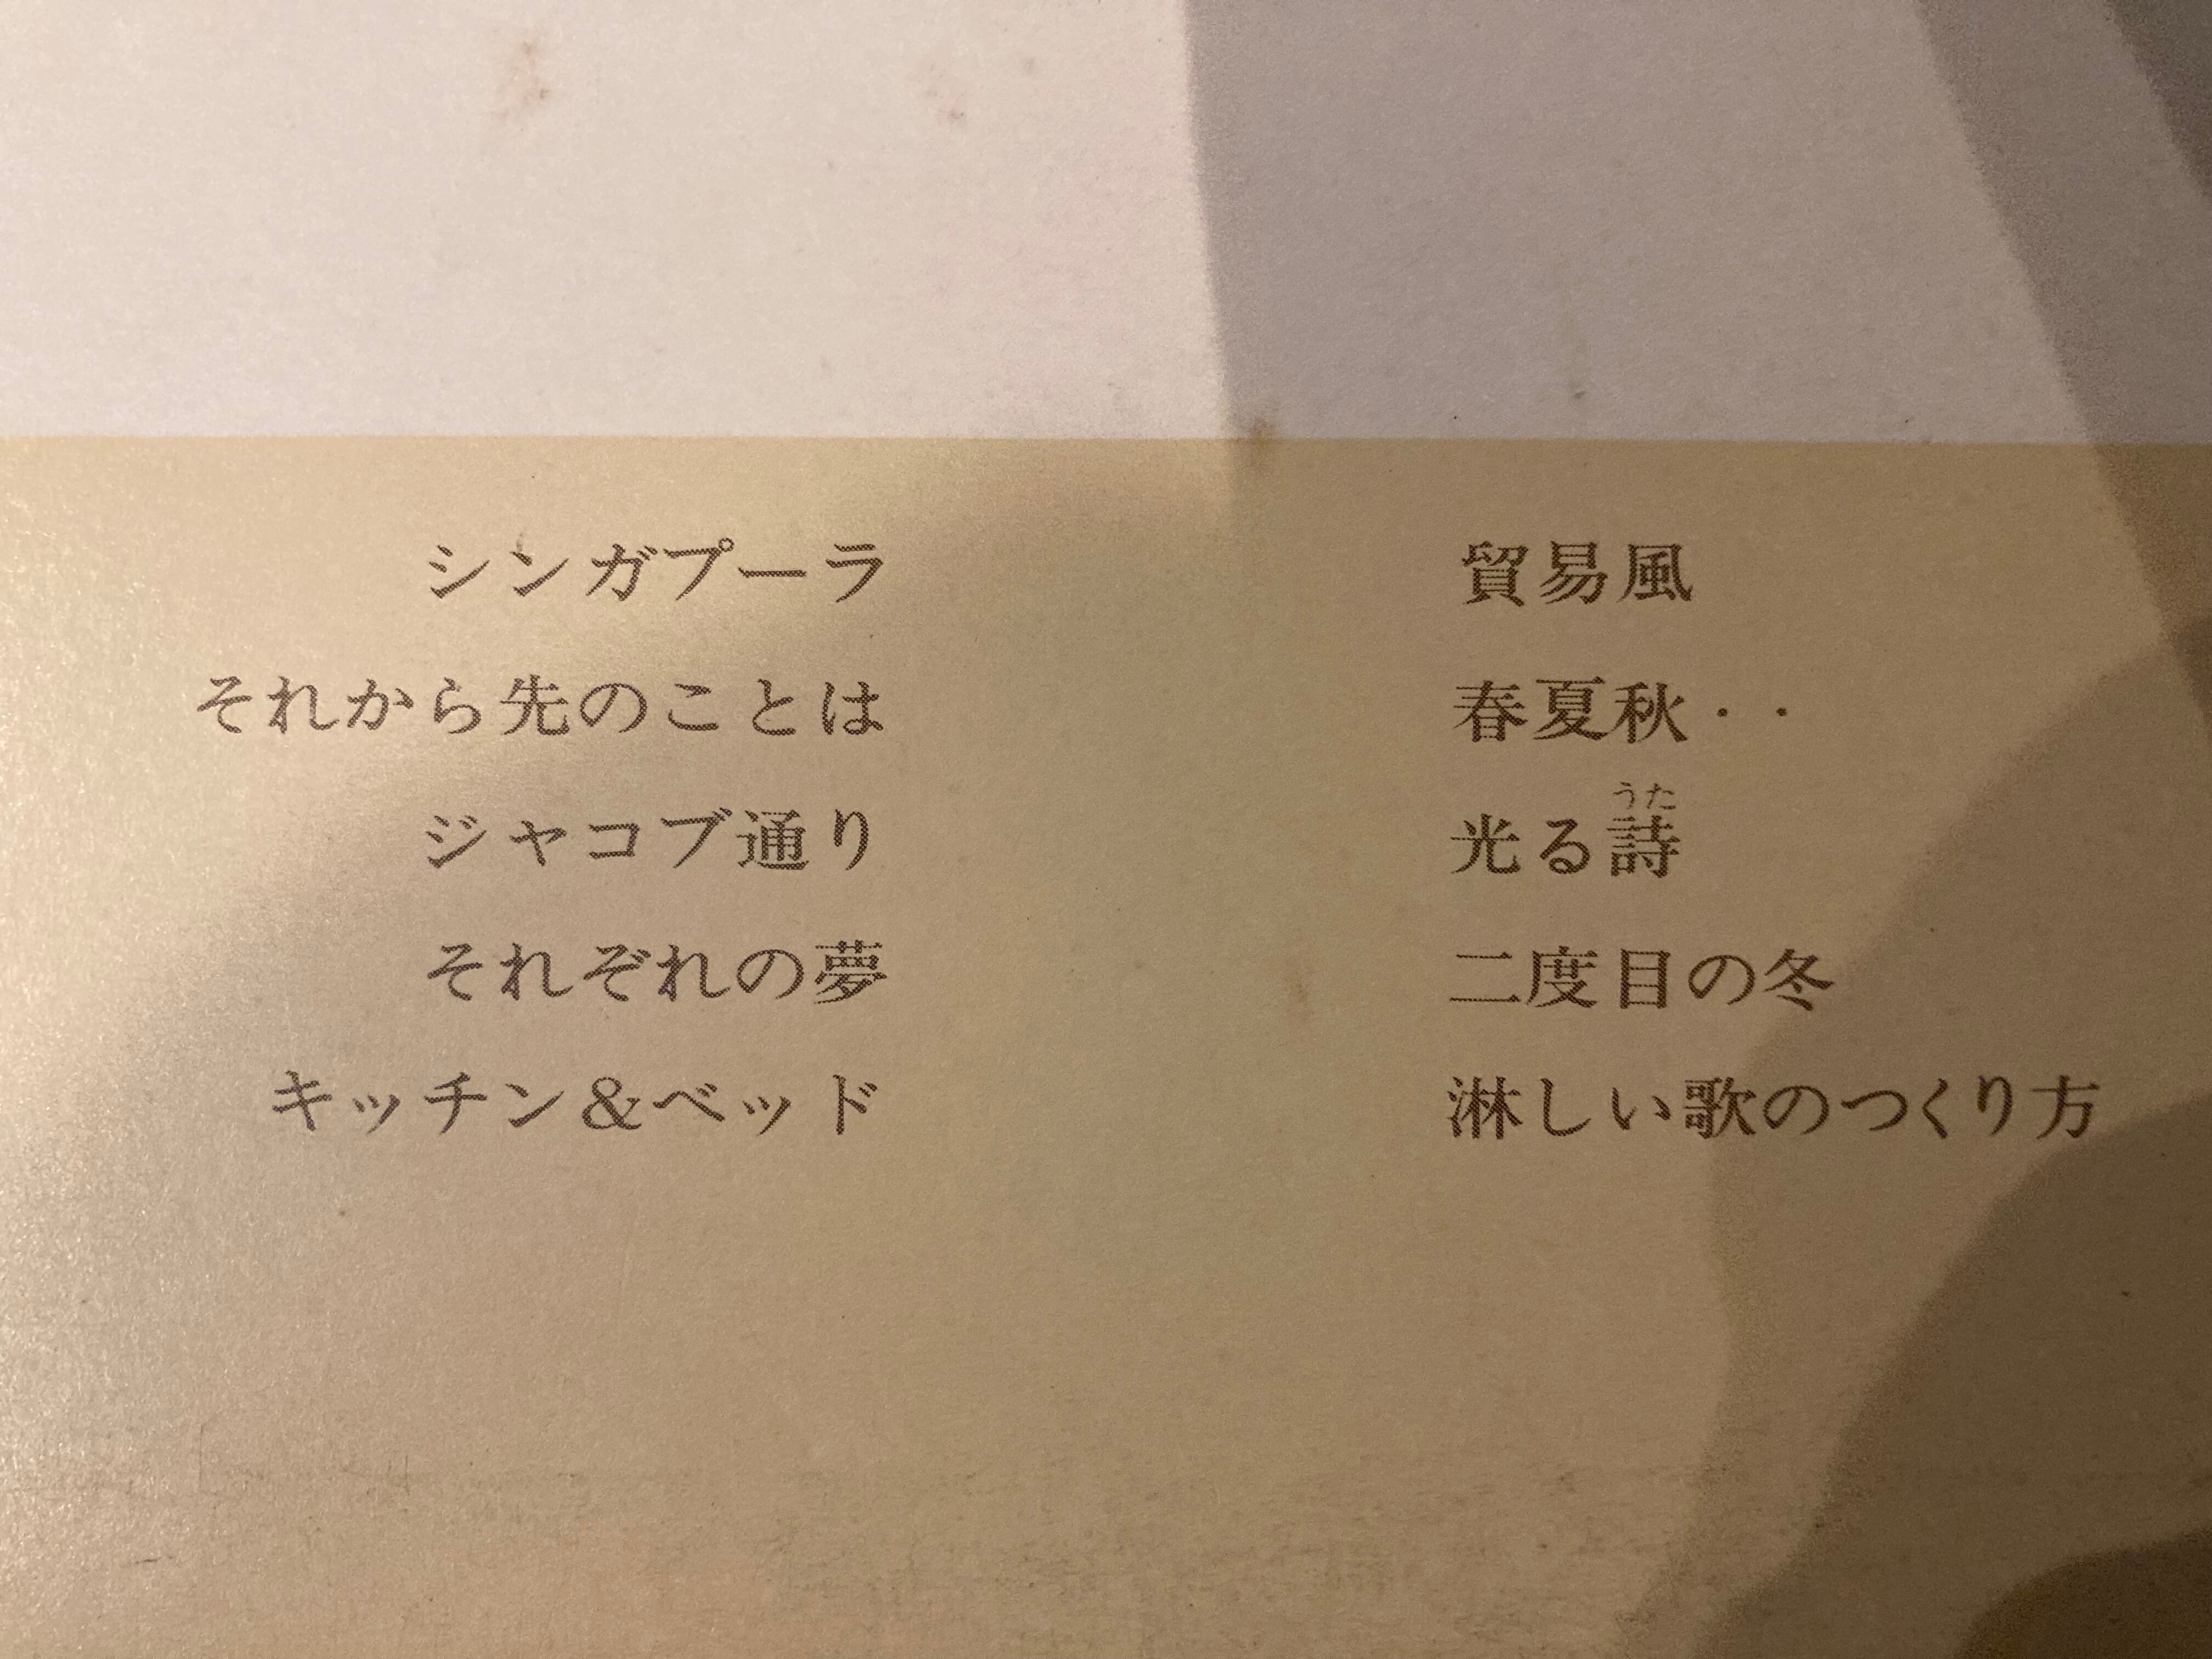 シンガプーラ
それから先のことは
ジャコブ通り
それぞれの夢
キッチン&ベッド
貿易風
春夏秋・・
うた
光る詩
二度目の冬
淋しい歌のつくり方